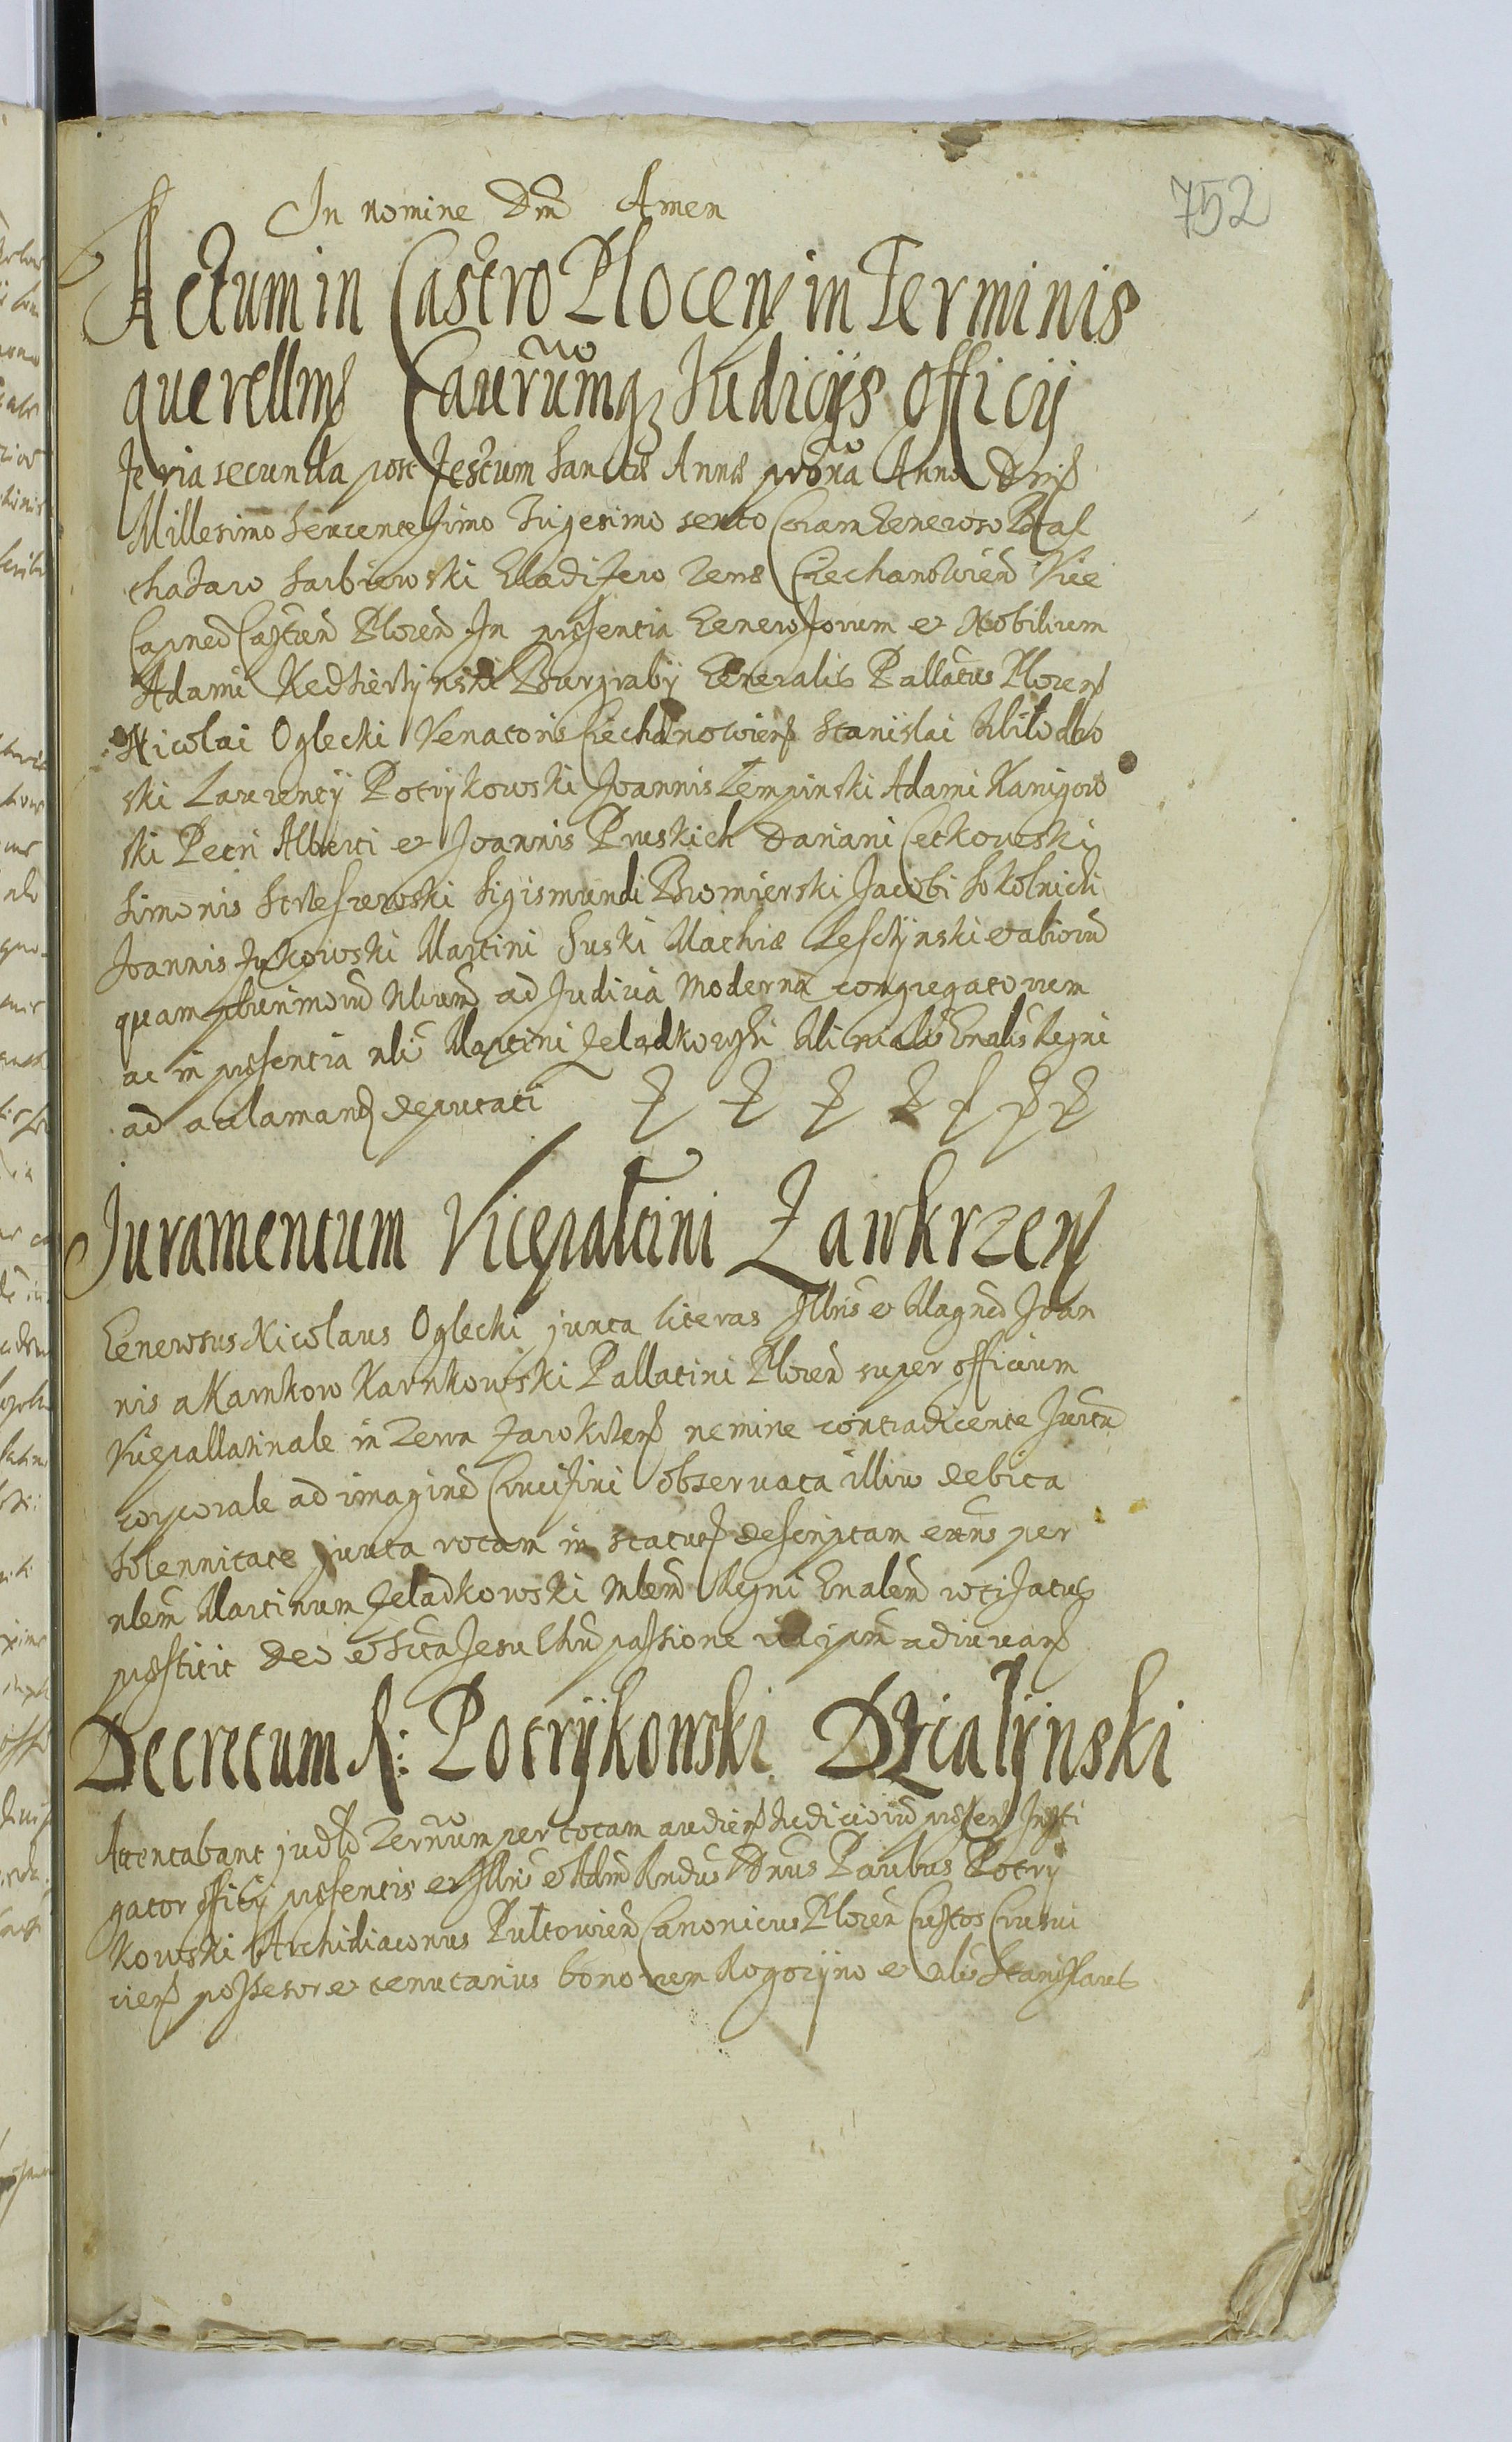 752
In nomine Dni Amen
Actum in Castro Plocen in Terminis
querellms Caurumq Judicijs officij
feria secunda post festum Sanctæ Annæ proxia Anno Dni
Millesimo Sexcentesimo Trigesimo sexto Coram Generoso Bal
thasaro Sarbiewski Gladifero Terræ Ciechanowien Vice
Capned Castren Plocen In præsentia Generosorum et Nobilium
Adami Burgrabij Generalis Pallatus Plocen
Nicolai Oglecki Venatoris Ciechanowien Stanislai Milodro
ski Laurentij Potrykowski Joannis Lempinski Adami Kanigow
ski Petri Alberti et Joannis Pruskich Dariani Cetkowski
Simonis Sigismundi Bromierski Jacobi Sokolnicki
Joannis Jukowski Martini Suski Mathiæ et aliorum
quam plurimorum Nlium ad Judicia Moderna congregatorum
ac in præsentia nlis Martini Zeladkowski Mirialis Gnalis Regni
ad acclamand deputati
Juramentum Vicepaltini Zawkrzen
Generosus Nicolaus Oglecki juxta literas Illris et Magned Joan
nis a Karnkow Karnkowski Pallatini Plocen super officium
Vicepallatinale in Terra Zawkrzen nemine contradicente Jurtu
corporale ad imagine Crucifixi observata illius debita
Solennitate juxta rotam in statut descriptam extus per
nlem Martinum Zeladkowski Mlem Regni Gnalem rotisatus
præstitit Deo et Scta Jesu Chri passione ita ipsum adiuvan
Decretum R: Potrykowski Dzialynski
Attentabant judld Terrum per totam audien Judiciorum præsen Insti
gator officij præsentis et Illris et Adm Rndus Dnus Paulus Potry
kowski Archidiaconus Pultowien Canonicus Plocen Custos Crusvi
cien possesor et tenutarius bonorum Rogozyno et nlis Stanislaus